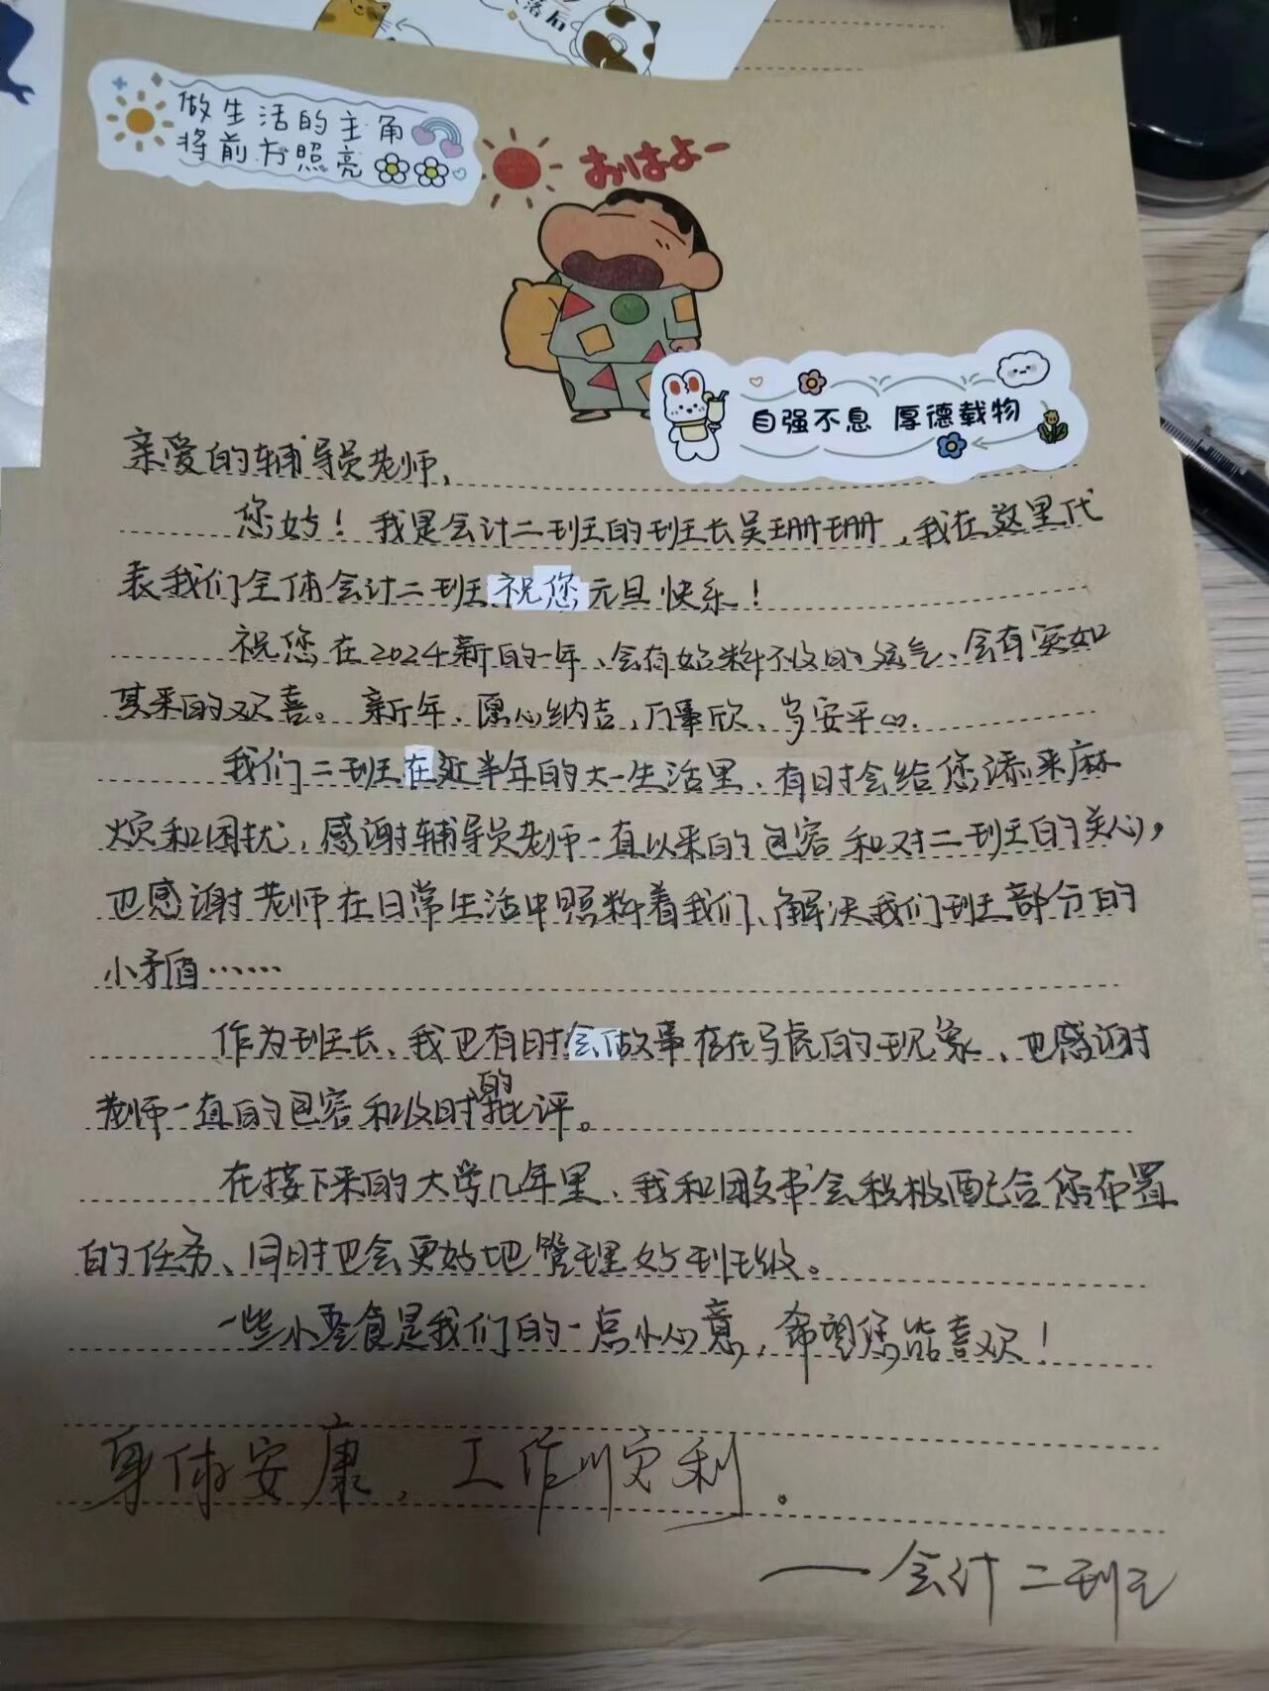 落后
做生活的主角
将前方照亮
おはよー
自强不息 厚德载物
亲爱的辅导员老师,
您好！我是会计二班的班长吴珊珊,我在这里代
表我们全体会计二班祝您元旦快乐！
祝您在2024新的一年、会有好料不及的运气、会有突如
其来的欢喜。新年、愿心纳吉,万事欣、岁安平心.
我们二班在近半年的大一生活里、有时会给您添来麻
烦和困扰,感谢辅导员老师一直以来的包容和对二班的关心,
也感谢老师在日常生活中照料着我们、解决我们班部分的
小矛盾……
作为班长、我也有时会做事存在马虎的现象、也感谢
老师一直的包容和及时的批评。
在接下来的大学几年里、我和团支书会积极配合您布置
的任务、同时也会更好地管理好班级。
一些小零食是我们的一点小心意,希望您能喜欢！
身体安康,工作顺利。
——会计二班